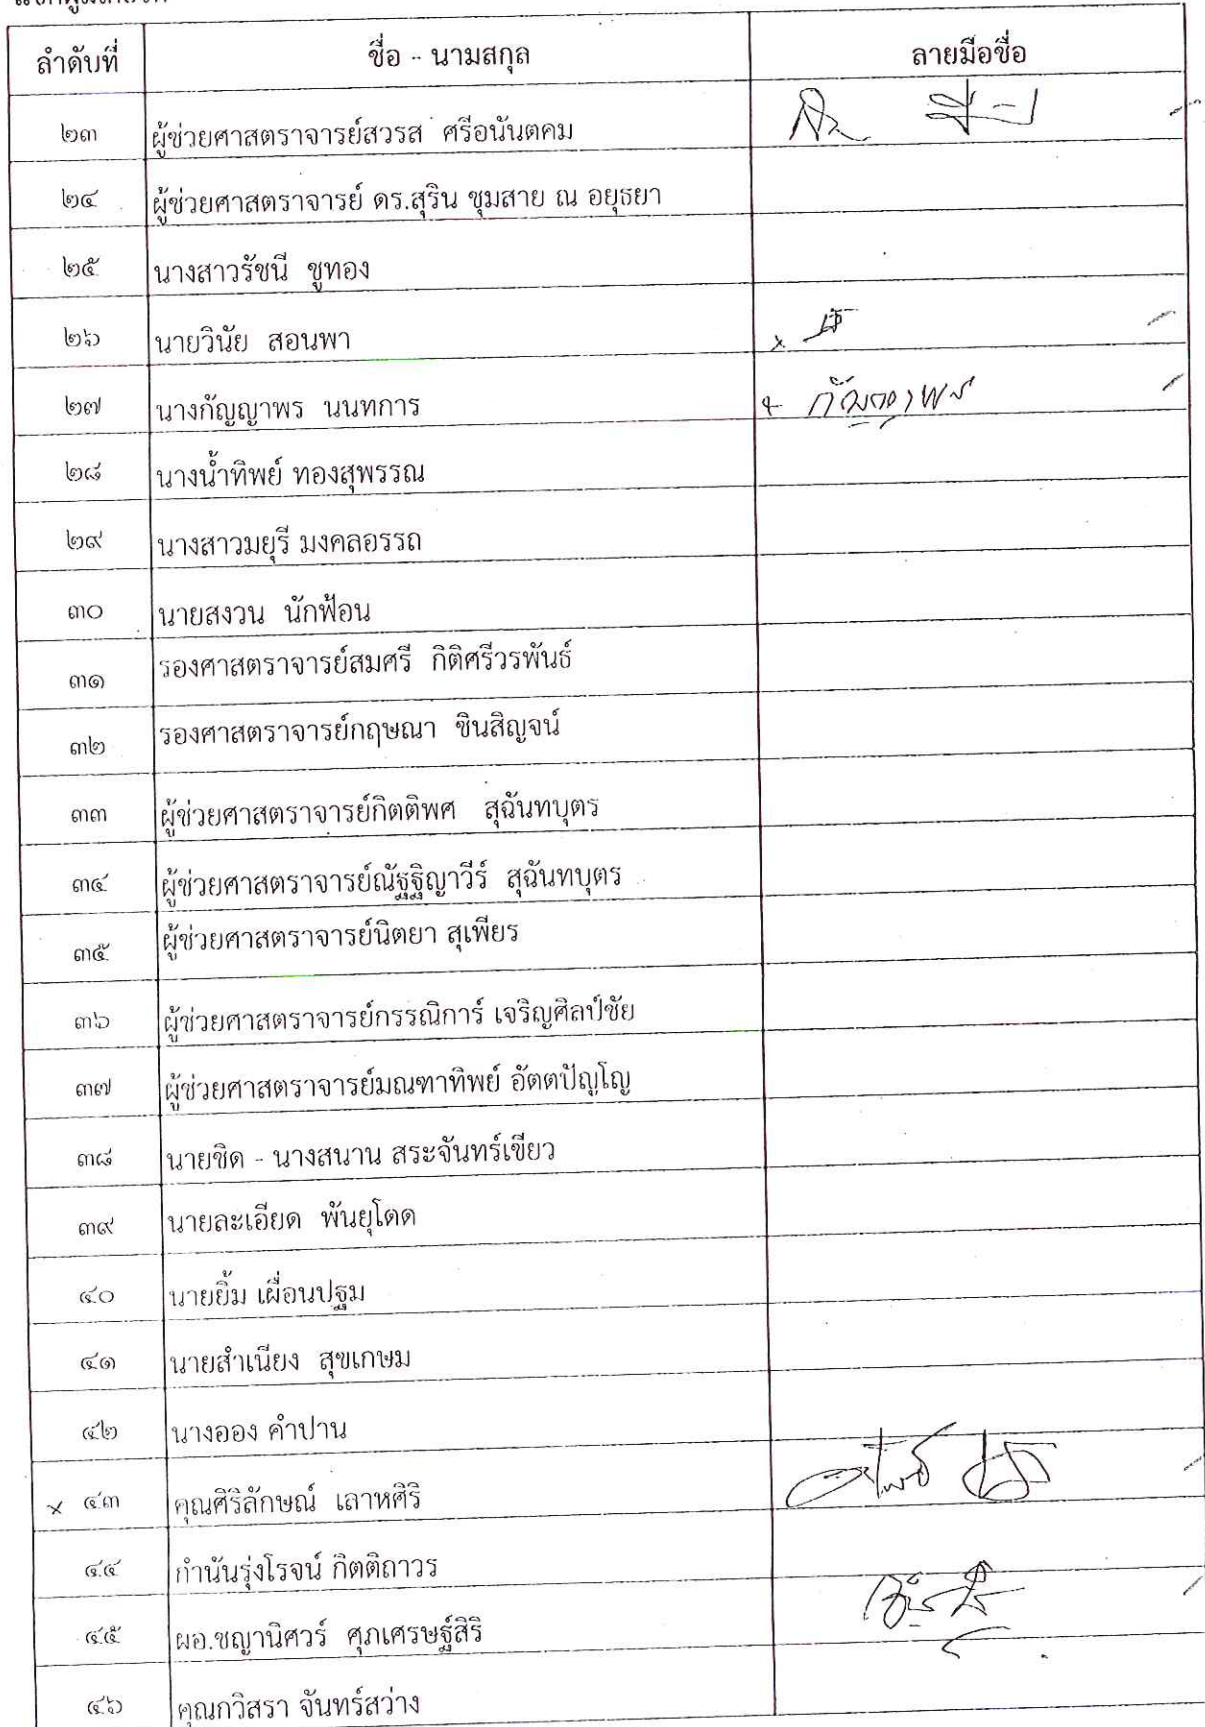 ลำดับที่ ชื่อ - นามสกุล ลายมือชื่อ
๒๓ ผู้ช่วยศาสตราจารย์สวรส ศรีอนันตคม
๒๔ ผู้ช่วยศาสตราจารย์ ดร.สุริน ชุมสาย ณ อยุธยา
๒๕ นางสาวรัชนี ชูทอง
๒๖ นายวินัย สอนพา
๒๗ นางกัญญาพร นนทการ กัญญาพร
๒๘ นางน้ำทิพย์ ทองสุพรรณ
๒๙ นางสาวมยุรี มงคลอรรถ
๓๐ นายสงวน นักฟ้อน
๓๑ รองศาสตราจารย์สมศรี กิติศรีวรพันธ์
๓๒ รองศาสตราจารย์กฤษณา ชินสิญจน์
๓๓ ผู้ช่วยศาสตราจารย์กิตติพศ สุฉันทบุตร
๓๔ ผู้ช่วยศาสตราจารย์ณัฐฐิญาวีร์ สุฉันทบุตร
๓๕ ผู้ช่วยศาสตราจารย์นิตยา สุเพียร
๓๖ ผู้ช่วยศาสตราจารย์กรรณิการ์ เจริญศิลป์ชัย
๓๗ ผู้ช่วยศาสตราจารย์มณฑาทิพย์ อัตตปัญโญ
๓๘ นายชิด - นางสนาน สระจันทร์เขียว
๓๙ นายละเอียด พันยุโดด
๔๐ นายยิ้ม เผื่อนปฐม
๔๑ นายสำเนียง สุขเกษม
๔๒ นางออง คำปาน
× ๔๓ คุณศิริลักษณ์ เลาหศิริ
๔๔ กำนันรุ่งโรจน์ กิตติถาวร
๔๕ ผอ.ชญานิศวร์ ศุภเศรษฐ์สิริ
๔๖ คุณกวิสรา จันทร์สว่าง